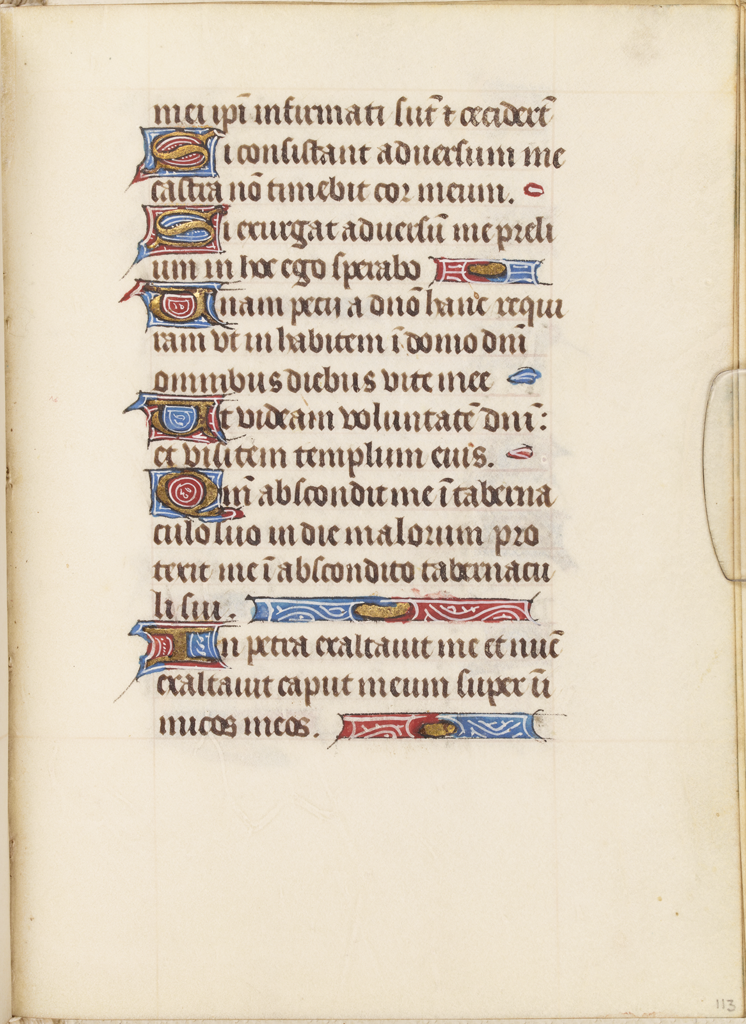 mei ip̄i infirmati sūt ⁊ cecider̄t
Si consistant adversum me
castra nō timebit cor meum.
Si exurgat adversū me preli
um in hoc ego sperabo
Unam petii a dn̄o hanc requi
ram vt inhabitem ī domo dn̄i
omnibus diebus vite mee
Ut videam voluntatē dn̄i:
et visitem templum eius.
Qm̄ abscondit me ī taberna
culo suo in die malorum pro
texit me ī abscondito tabernacu
li sui.
In petra exaltavit me et nūc
exaltavit caput meum super ī
nimicos meos.
113